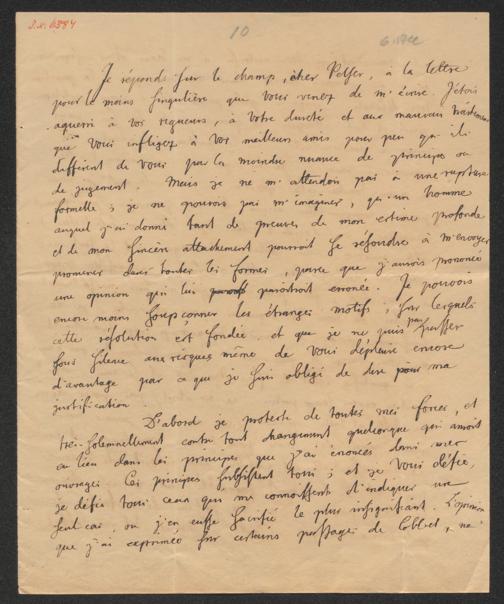 S.n. 6384
10
6. Dec
Je réponds sur le champ, cher Pelser, à la lettre
pour le moins singulière que vous venez de m'écrire. J'étois
aguerri à vos rigueurs, à votre dureté et aux mauvais traitemens
que vous infligez à vos meilleurs amis pour peu qu'ils
different de vous par la moindre nuance de principes ou
de jugement. Mais je ne m'attendois pas à une rupture
formelle; je ne pouvois pas m'imaginer, qu'un homme
auquel j'ai donné tant de preuves de mon estime profonde
et de mon sincère attachement pourroit se résoudre à m'envoyer
promener dans toutes les formes, parce que j'aurois prononcé
une opinion qui lui paroitroit erronée. Je pouvois
encore moins soupçonner les étranges motifs, sur lesquels
cette résolution est fondée, et que je ne puis pas passer
sous silence aux risques meme de vous déplaire encore
d'avantage par ce que je suis obligé de dire pour ma
justification.
D'abord je proteste de toutes mes forces, et
très-solemnellement contre tout changement quelconque qui auroit
eu lieu dans les principes que j'ai énoncés dans mes
ouvrages. Ces principes subsistent tous; et je vous défie,
je défie tous ceux qui me connoissent d'indiquer un
seul cas, où j'en eusse sacrifié le plus insignifiant. L'opinion
que j'ai exprimée sur certains passages de Cobbet, ne